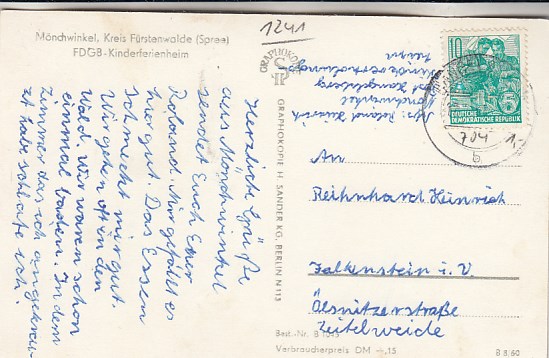 Mönchwinkel, Kreis Fürstenwalde (Spree)
FDGB-Kinderferienheim
1241
Herzliche Grüße
aus Mönchwinkel
sendet Euch Euer
Roland. Mir gefällt es
hier gut. Das Essen
schmeckt mir gut.
Wir gehen oft in den
Wald. Wir waren schon
einmal baden. In dem
Zimmer das ich angekreu-
zt habe schlafe ich.
GRAPHOKOPIE
GRAPHOKOPIE H. SANDER KG, BERLIN N 113
Abs: Roland Heinrich
Mönchwinkel
Kindererholungs
heim
10
5
DEUTSCHE
DEMOKRATISCHE REPUBLIK
b
704
1,
An
Reihnhard Heinrich
Falkenstein i. V.
Ölsnitzerstraße
Zeitelweide
Best.-Nr. B 1043
Verbraucherpreis DM -,15
B 8/60